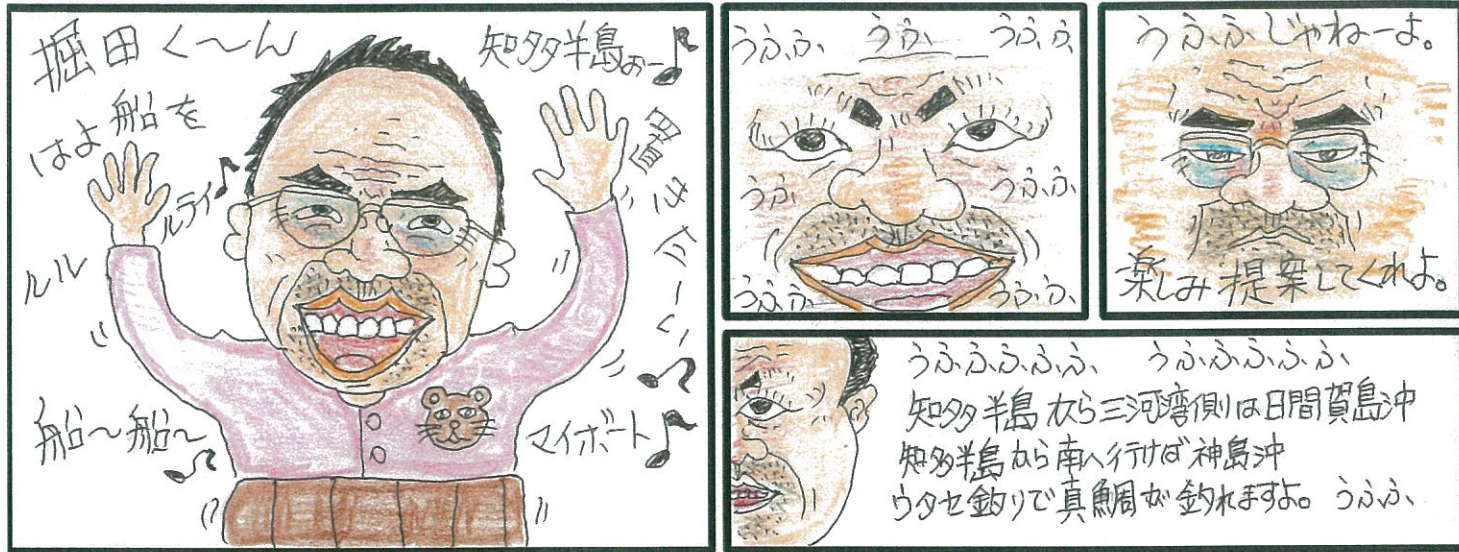 堀田く〜ん
はよ船を
知多半島ぉー♪
置きたーい♪
ルライ♪
ルル
船〜船〜♪
マイボート♪
うふふ、
うふ
うふふ、
うふ
うふふ、
うふふ、
うふふ、
うふふじゃねーよ。
楽しみ提案してくれよ。
うふふふふふ、 うふふふふふ、
知多半島から三河湾側は日間賀島沖
知多半島から南へ行けば神島沖
ウタセ釣りで真鯛が釣れますよ。 うふふ、